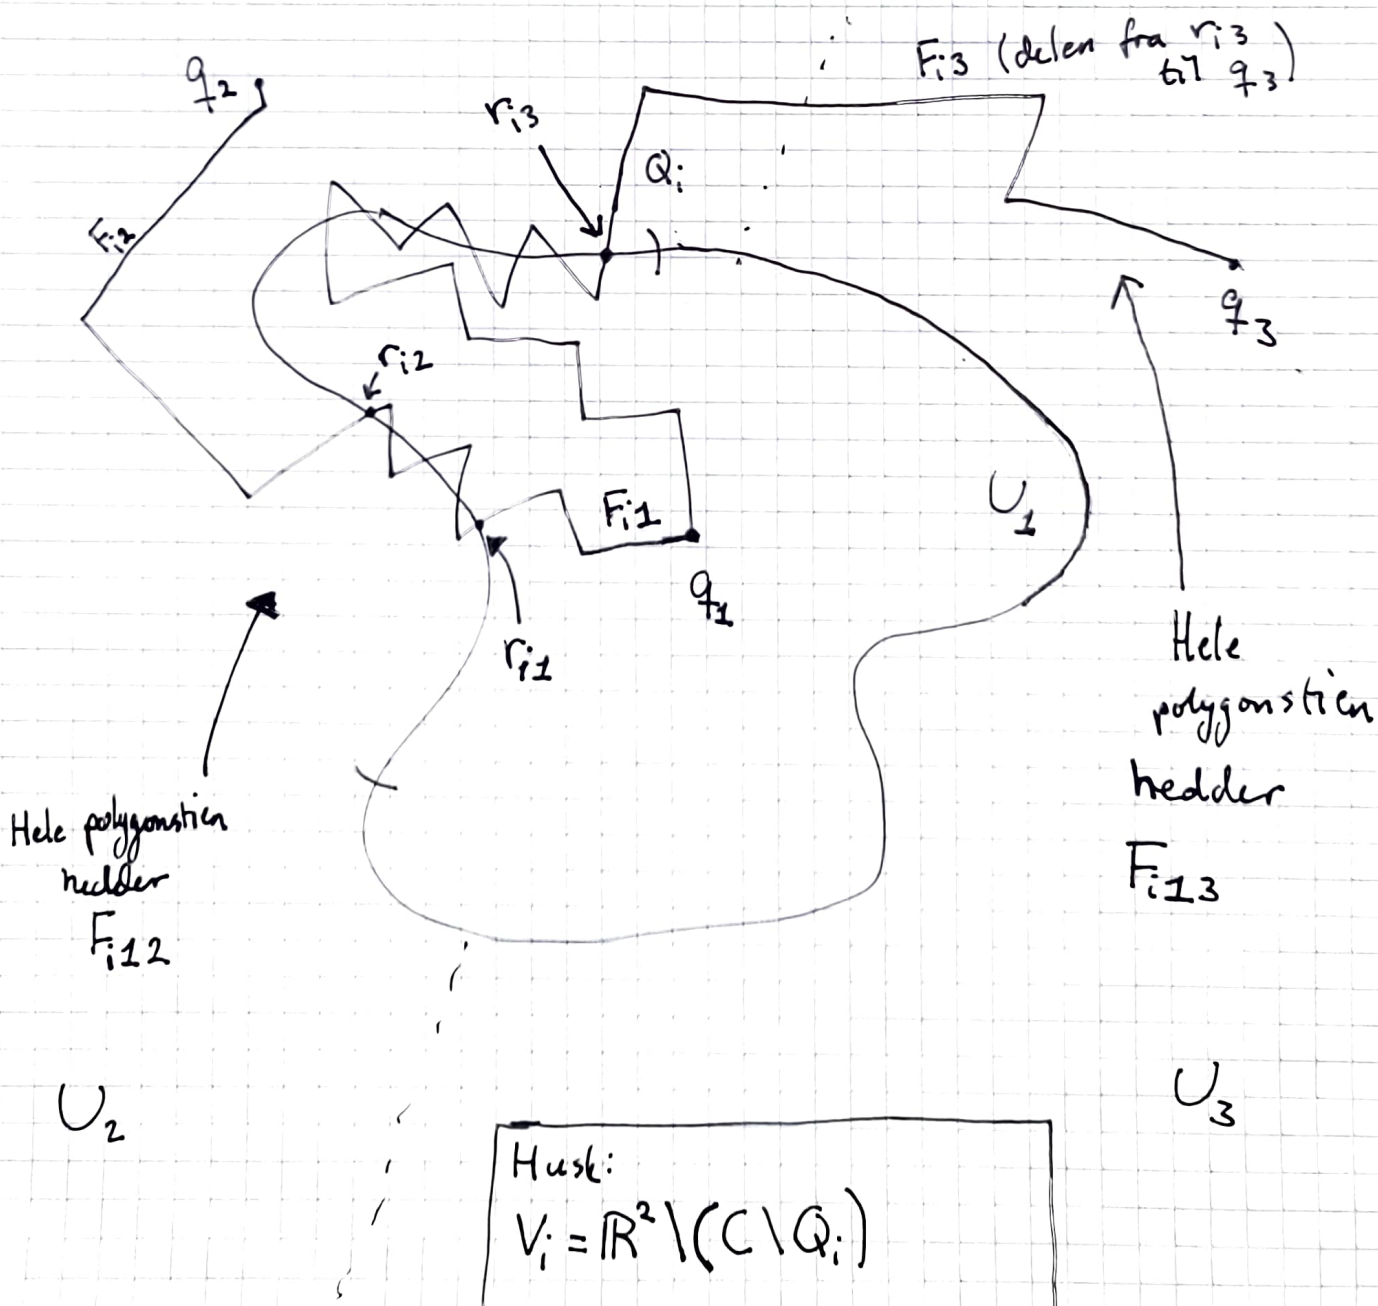 F_i3 (delen fra r_i3
til q_3)
q_2
r_i3
Q_i
F_i2
q_3
r_i2
U_1
F_i1
q_1
r_i1
Hele
polygonstien
hedder
F_i13
Hele polygonstien
hedder
F_i12
U_2
U_3
Husk:
V_i = ℝ² \ (C \ Q_i)